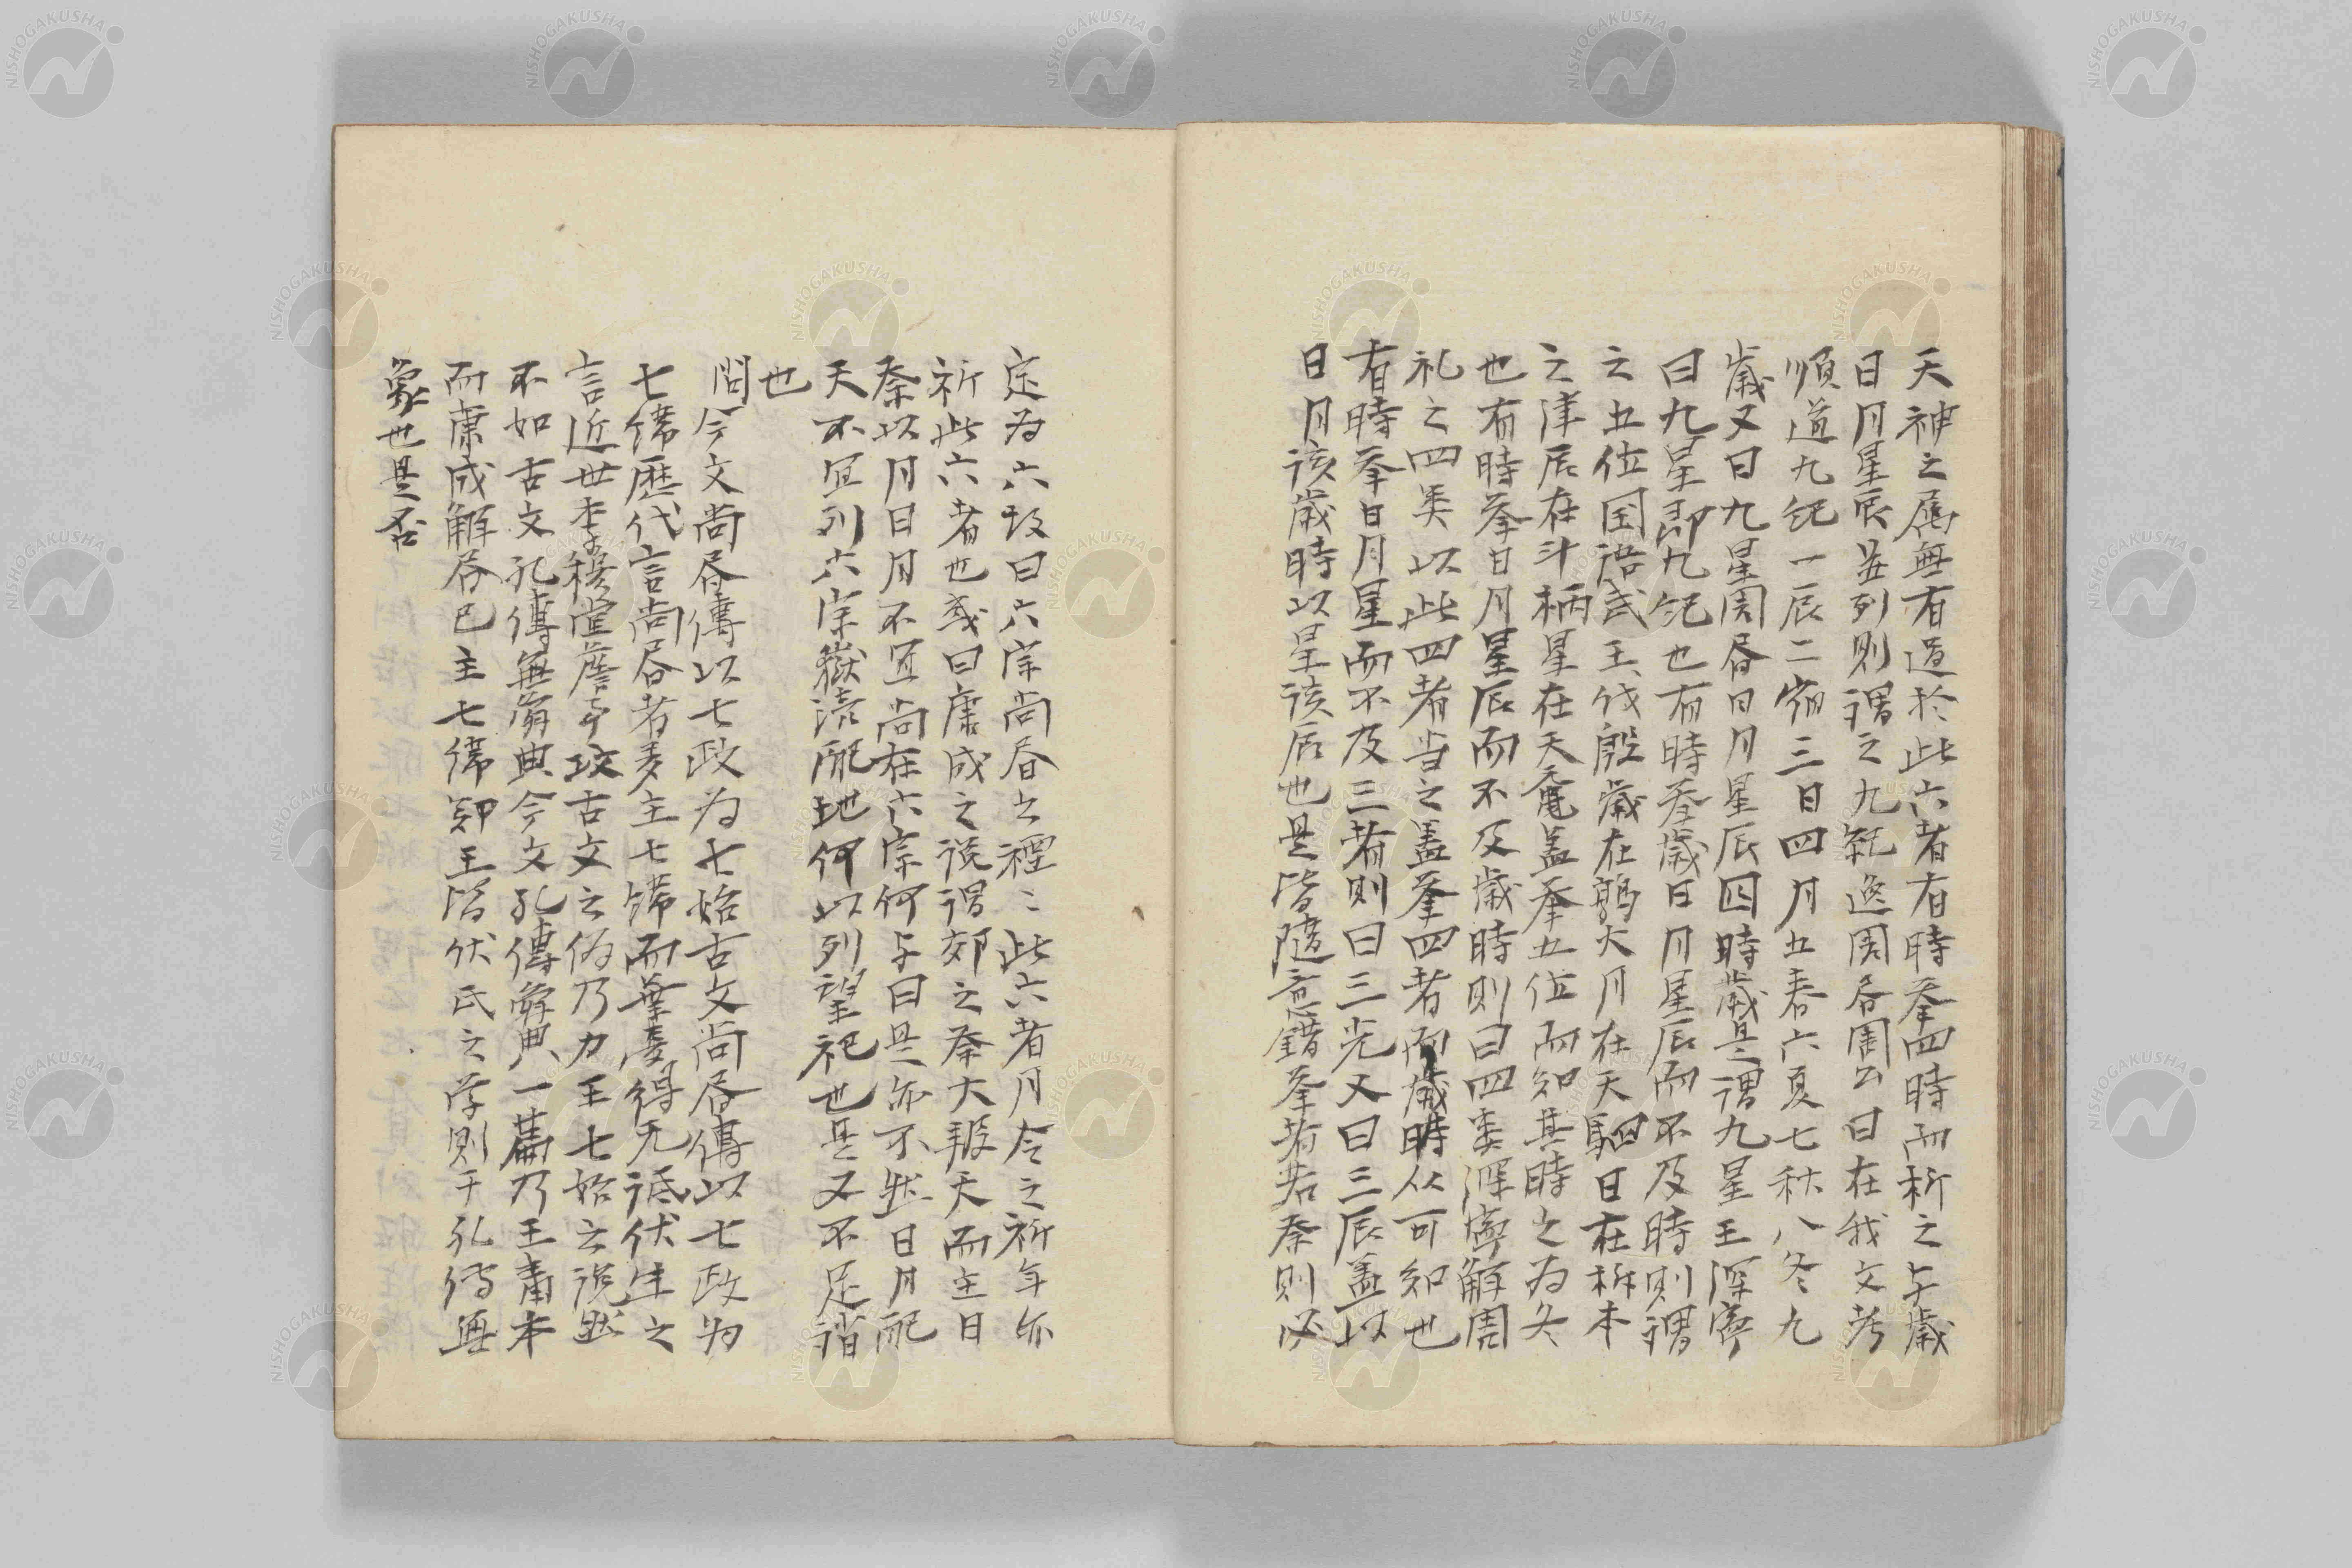 天神之属無有過於此六者有時挙四時而祈之与歳
日月星辰並列則謂之九紀逸周書周公曰在我文考
順道九紀一辰二宿三日四月五春六夏七秋八冬九
歳又曰九星周書日月星辰四時歳是謂九星王深寧
曰九星即九紀也有時挙歳日月星辰而不及時則謂
之五位国語武王伐殷歳在鶉火月在天駟日在析木
之津辰在斗柄星在天黿蓋挙五位而知其時之為冬
也有時挙日月星辰而不及歳時則曰四類深寧解周
礼之四类以此四者当之蓋挙四者而歳時从可知也
有時挙日月星而不及三者則曰三光又曰三辰蓋以
日月該歳時以星該辰也是皆随意錯挙若若祭則必
定為六故曰六宗尚書之禋〻此六者月令之祈年亦
祈此六者也或曰康成之説謂郊之祭大報天而主日
祭以月日月不宜尚在六宗何与曰是亦不然日月配
天不宜列六宗嶽涜配地何以列望祀也是又不足語
也
問今文尚書傳以七政为七始古文尚書傳以七政为
七緯歴代言尚書者多主七緯而華毫得无詆伏生之
言近世李穆堂詹事攻古文之偽乃力主七始之説然
不如古文孔傳無舜典今文孔傳舜典一篇乃王肅本
而康成解書已主七緯鄭王皆伏氏之学則于孔傳無
豪也是否
NISHOGAKUSHA